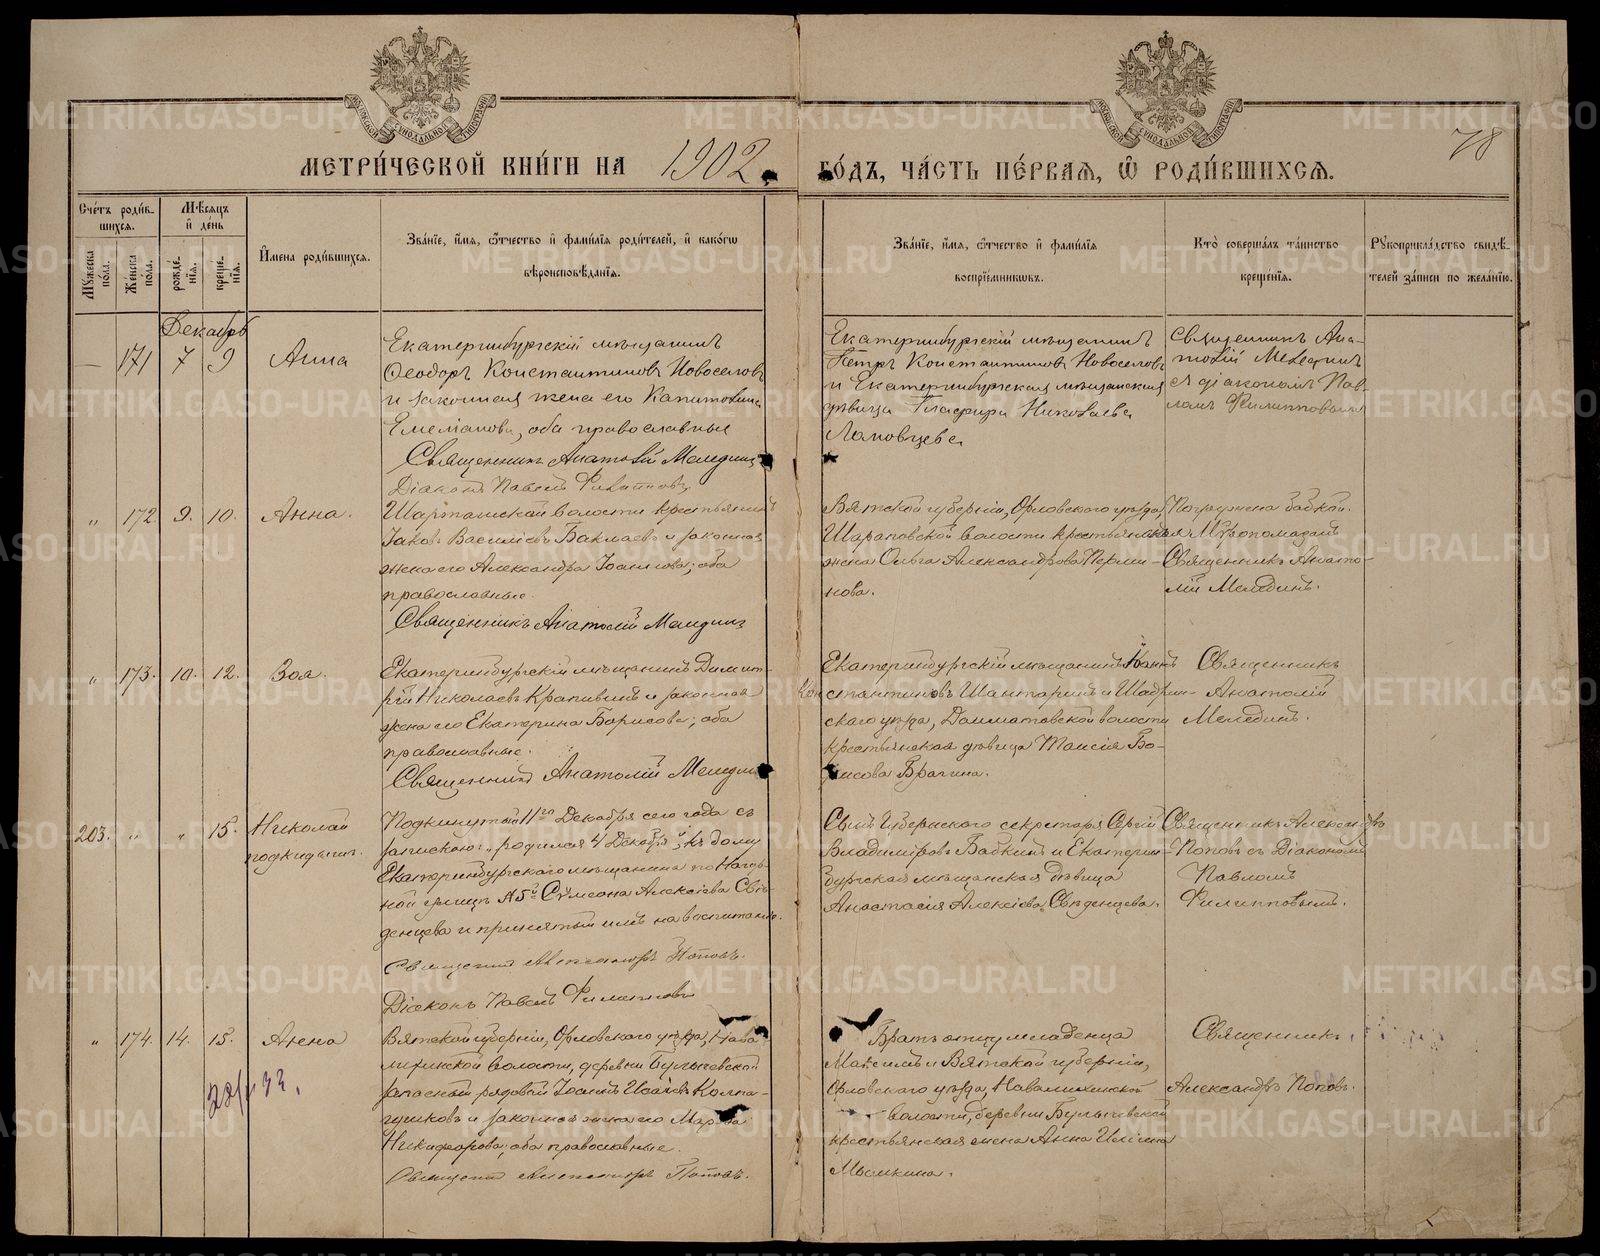 МЕТРИ́ЧЕСКОЙ КНИ́ГИ НА 1902
ГО́ДЪ, ЧА́СТЬ ПЕ́РВАѦ, Ѡ҆ РОДИ́ВШИХСѦ.
78
МОСКОВСКОЙ СѴНОДАЛЬНОЙ ТИПОГРАФІИ
МОСКОВСКОЙ СѴНОДАЛЬНОЙ ТИПОГРАФІИ
Сче́тъ роди́в-
шихсѧ.
Мꙋ́жеска по́ла.
Же́нска по́ла.
Мѣ́сѧцъ
и҆ де́нь
рожде́-
нїѧ.
креще́-
нїѧ.
И҆мена̀ роди́вшихсѧ.
Зва́нїе, и҆́мѧ, ѻ҆́тчество и҆ фами́лїѧ роди́телей, и҆ како́гѡ
вѣроисповѣ́данїѧ.
Зва́нїе, и҆́мѧ, ѻ҆́тчество и҆ фами́лїѧ
воспрїе́мниковъ.
Кто̀ соверша́лъ та́инство
креще́нїѧ.
Рꙋкоприкла́дство свидѣ́-
телей за́писи по жела́нїю.
Декабрь
— 171 7 9
Анна
Екатеринбургскій мѣщанинъ
Ѳеодоръ Константиновъ Новоселовъ
и законная жена его Капитолина
Емеліанова, оба православные
Священникъ Анатолій Мелединъ
Діаконъ Павелъ Филипповъ
Екатеринбургскій мѣщанинъ
Петръ Константиновъ Новоселовъ
и Екатеринбургская мѣщанская
дѣвица Глафира Николаева
Ломовцева
Священникъ Ана-
толій Мелединъ
съ діакономъ Пав-
ломъ Филипповымъ
„ 172. 9. 10.
Анна.
Шарташской волости крестьянинъ
Іаковъ Василіевъ Баклаевъ и законная
жена его Александра Іоаннова; оба
православные.
Священникъ Анатолій Мелединъ
Вятской губерніи, Орловскаго уѣзда,
Шараповской волости крестьянская
жена Ольга Александрова Перми-
нова.
Погружена бабкой.
Мѵропомазалъ
Священникъ Анато-
лій Мелединъ.
„ 173. 10. 12.
Зоя.
Екатеринбургскій мѣщанинъ Димит-
рій Николаевъ Крапивинъ и законная
жена его Екатерина Борисова; оба
православные.
Священникъ Анатолій Мелединъ
Екатеринбургскій мѣщанинъ Іоаннъ
Константиновъ Шантаринъ и Шадрин-
скаго уѣзда, Далматовской волости
крестьянская дѣвица Таисія Бо-
рисова Брагина.
Священникъ
Анатолій
Мелединъ.
203. „ „ 15.
Николай
подкидышъ.
Подкинутый 11го Декабря сего года съ
запискою: „родился 4 Декабря", къ дому
Екатеринбургскаго мѣщанина по Нагор-
ной улицѣ № 5й Сѵмеона Алексіева Свѣ-
денцева и принятый имъ на воспитаніе.
Священникъ Александръ Поповъ.
Діаконъ Павелъ Филипповъ
Сынъ Губернскаго секретаря Сергій
Владиміровъ Бабкинъ и Екатерин-
бургская мѣщанская дѣвица
Анастасія Алексіева Свѣденцева.
Священникъ Александръ
Поповъ съ Діакономъ
Павломъ
Филипповымъ.
„ 174. 14. 15.
Анна
Вятской губерніи, Орловскаго уѣзда,
волости, деревни Булычевской
запасный рядовый Іоаннъ Исаіевъ Колпа-
щиковъ и законная жена его Марѳа
Никифорова; оба православные.
Священникъ Александръ Поповъ.
Братъ отцу младенца
Максимъ и Вятской губерніи,
Орловскаго уѣзда,
волости, деревни Булычевской
крестьянская жена Анна
Мышкина.
Священникъ
Александръ Поповъ.
METRIKI.GASO-URAL.RU